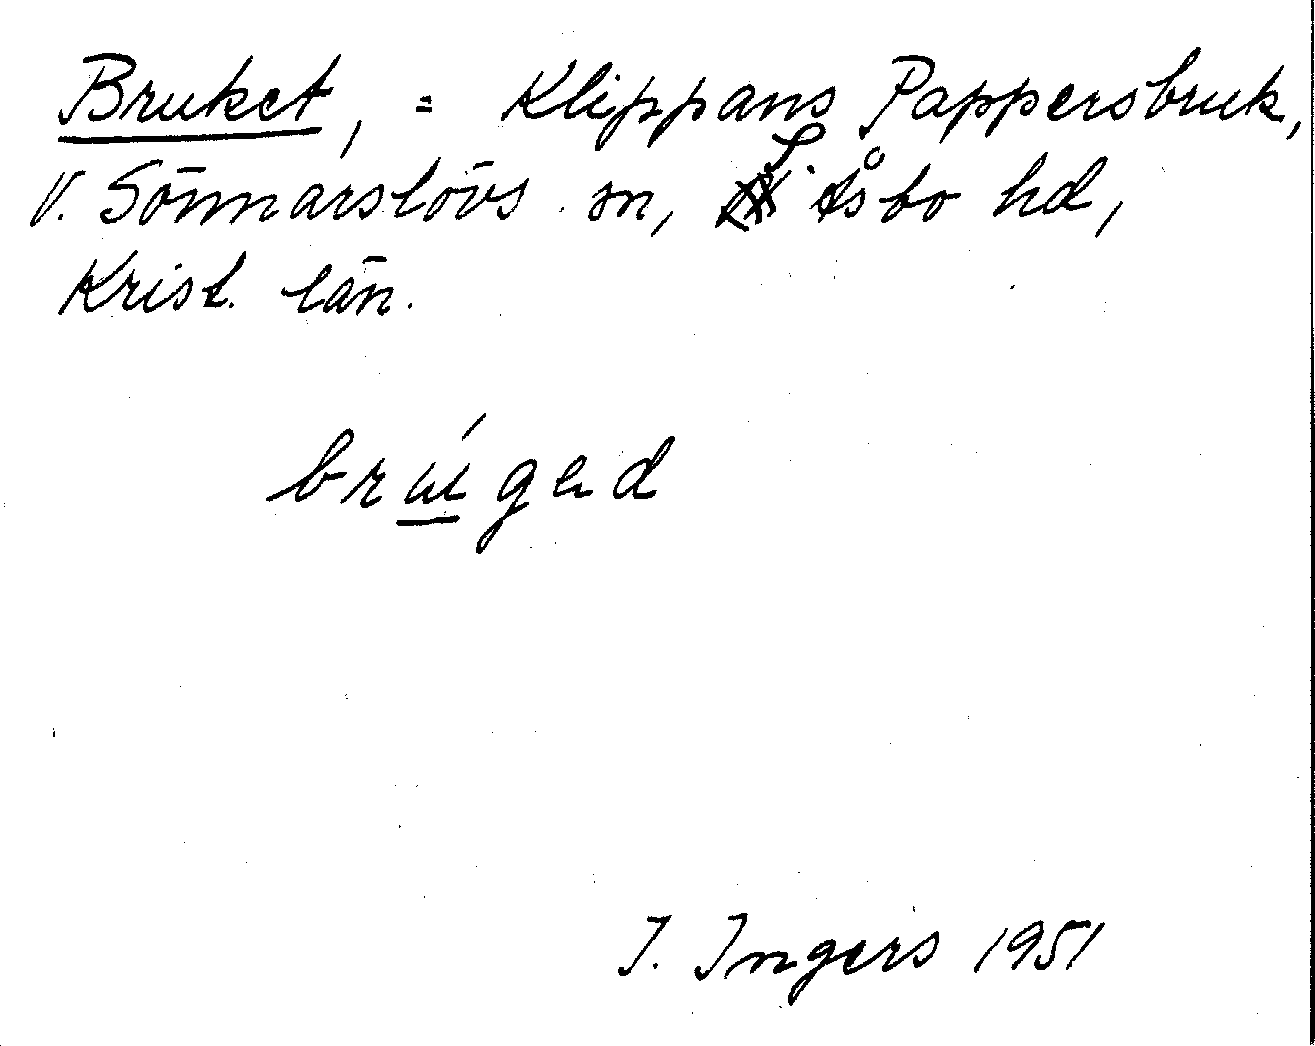 Bruket, = Klippans Pappersbruk,
V. Sönnarslövs sn, S. Åsbo hd,
Krist. län.
brúged
I. Ingers 1951